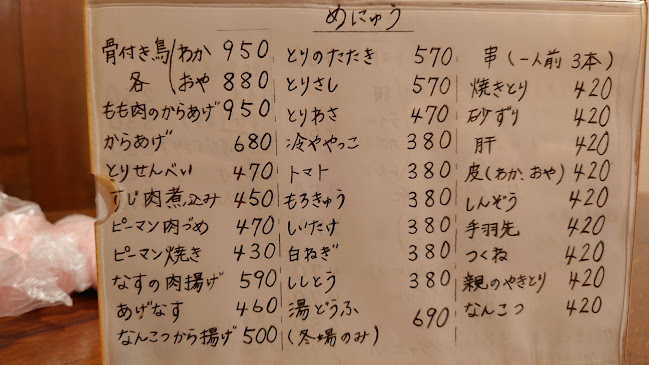 めにゅう
骨付き鳥/わか 950
各/おや 880
もも肉のからあげ 950
からあげ 680
とりせんべい 470
すじ肉煮込み 450
ピーマン肉づめ 470
ピーマン焼き 430
なすの肉揚げ 590
あげなす 460
なんこつから揚げ 500
とりのたたき 570
とりさし 570
とりわさ 470
冷ややっこ 380
トマト 380
もろきゅう 380
しいたけ 380
白ねぎ 380
ししとう 380
湯どうふ 690
(冬場のみ)
串(一人前 3本)
焼きとり 420
砂ずり 420
肝 420
皮(わか、おや) 420
しんぞう 420
手羽先 420
つくね 420
親のやきとり 420
なんこつ 420